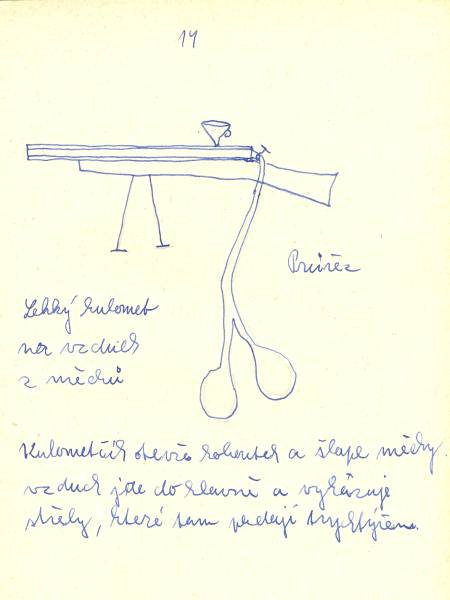 14
Průřez
Lehký kulomet
na vzduch
z měchů
Kulometčík otevře kohoutek a šlape měchy.
vzduch jde do hlavně a vyhazuje
střely, které tam padají trychtýřem.